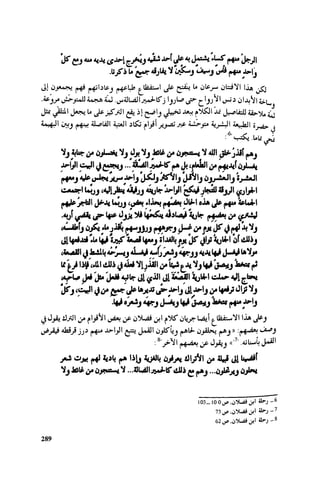 الرجلُ منهم كساءً يشتمل به على أحد شقَّيه ويُخرج إحدى يديه منه ومع كلّ
واحد منهم فأسٌ وسيفٌ وسكّينٌ لا يفارقه جميعُ ما ذكرنا.
لكن هذا الافتتان سرعان ما ينفتح على استفظاع طباعهم وعاداتهم فهم يجمعون إلى
وساخة الأبدان دنس الأرواح حتى صاروا زكالحمير الضالةس. ثمة هجمة للمتوحّش مروعة.
ثمة ملاحقة للتفاصيل تمدّ الكلام ببعد تخييلي واضح إذ يقع التركيز على ما يجعل المتلقّي يمثل
في حضرة الطبيعة البشرية متوحّشة عبر تصوير أقوام تكاد العتبة الفاصلة بينهم وبين البهيمة
تمّحي تماما. يكتب
وهم أقذرُ خلق الله لا يستنجون من غائط ولا بول، ولا يغتسلون من جنابة ولا
يغسلون أيديهم من الطّعام، بل هم كالحمير الضالّة... ويجتمع في البيت الواحد
العشرة والعشرون والأقلُّ والأكثرُ ولكلّ واحد سرير يجلس عليه ومعهم
الجواري الروقة للتّجار فينكحُ الواحدُ جاريتَه ورفيقُه ينظر إليه، وربّما اجتمعت
الجماعةُ منهم على هذه الحال بعضُهم بحذاء بعض، وربّما يدخل التاجرُ عليهم
ليشتري من بعضهم جاريةً فيصادفُه ينكحُها فلا يزول عنها حتى يقضي أربه.
ولا بدّ لهم في كلّ يوم من غسل وجوههم ورؤوسهم بأقذر ماء يكون وأطفسه،
وذلك أنّ الجارية توافي كلّ يوم بالغداة ومعها قصعةٌ كبيرةٌ فيها ماءٌ فتدفعها إلى
مولاها فيغسل فيها يديه ووجهه وشعرَ رأسه فيغسله ويسرّحُه بالمشط في القصعة،
ثم يمتخط ويبصق فيها ولا يدع شيئا من القذر إلا فعلَه في ذلك الماء، فإذا فرغ ممّا
يحتاج إليه حملت الجاريةُ القصعةَ إلى الذي إلى جانبه ففعل مثلَ فعل صاحبه،
ولا تزال ترفعها من واحد إلى واحد حتى تديرها على جميع من في البيت، وكلُّ
واحد منهم يتمخّط ويبصق فيها ويغسل وجهَه وشعرَه فيها.
وعلى هذا الاستفظاع أيضا جريان كلام ابن فضلان عن بعض الأقوام من الترك يقول في
وصف بعضهم: «وهم يحلقون لحاهم ويأكلون القمل يتتبع الواحد منهم درز قرطقه فيقرض
القمل بأسنانه.» ويقول عن بعضهم الآخر:
أفضينا إلى قبيلة من الأتراك يعرفون بالغزية وإذا هم بادية لهم بيوت شعر
يحلون ويرتحلون... وهم مع ذلك كالحمير الضالة... لا يستنجون من غائط ولا
6- رحلة ابن فضلان. ص
7- رحلة ابن فضلان. ص 73
8- رحلة ابن فضلان. ص 62
289